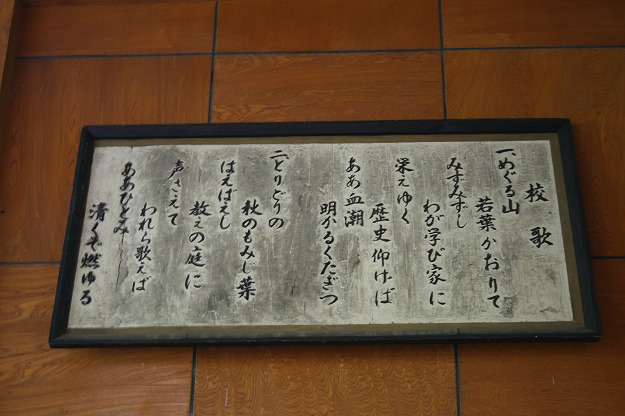 校歌
一、めぐる山
若葉かおりて
みずみずし
わが学び家に
栄えゆく
歴史仰げば
ああ血潮
明かるくたぎつ
二、とりどりの
秋のもみじ葉
はえばえし
教えの庭に
声さえて
われら歌えば
ああひとみ
清くぞ燃ゆる